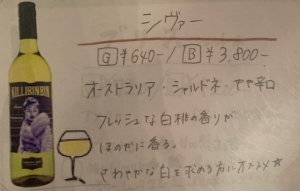 シヴァー
G ¥640-/ B ¥3,800-
オーストラリア・シャルドネ・やや辛口
フレッシュな白桃の香りが
ほのかに香る。
さわやかな白を求める方にオススメ☆
KILLIBINBIN